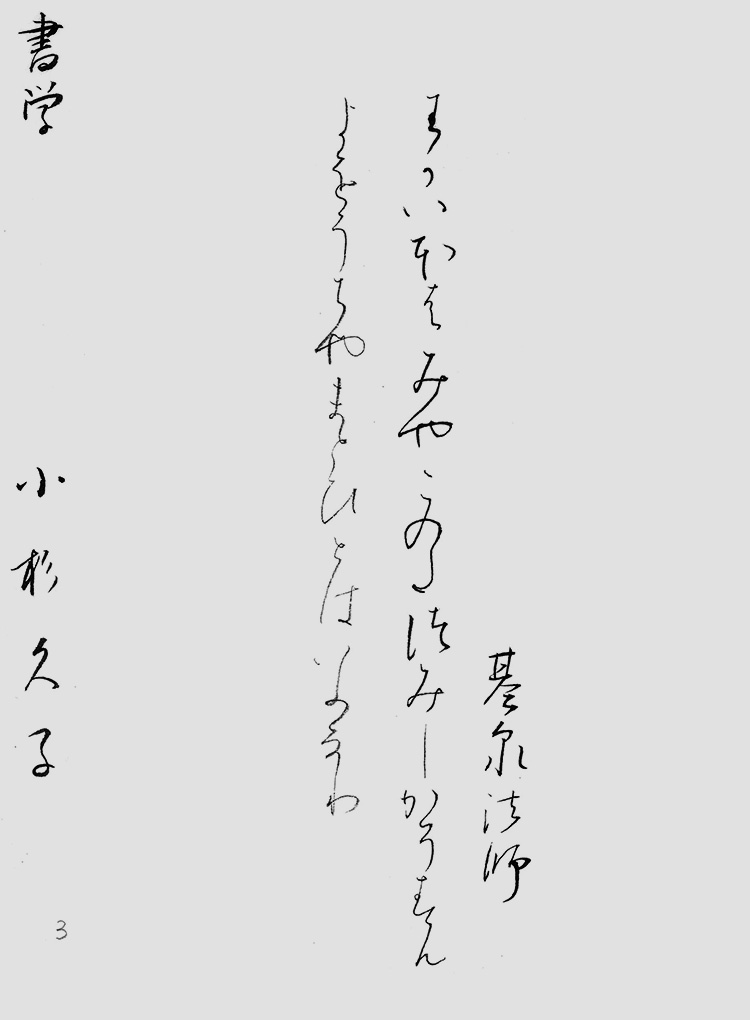 基泉法師
わかいほはみやこのたつみしかそすむ
よをうちやまとひとはいふなり
書学 小杉久子
3